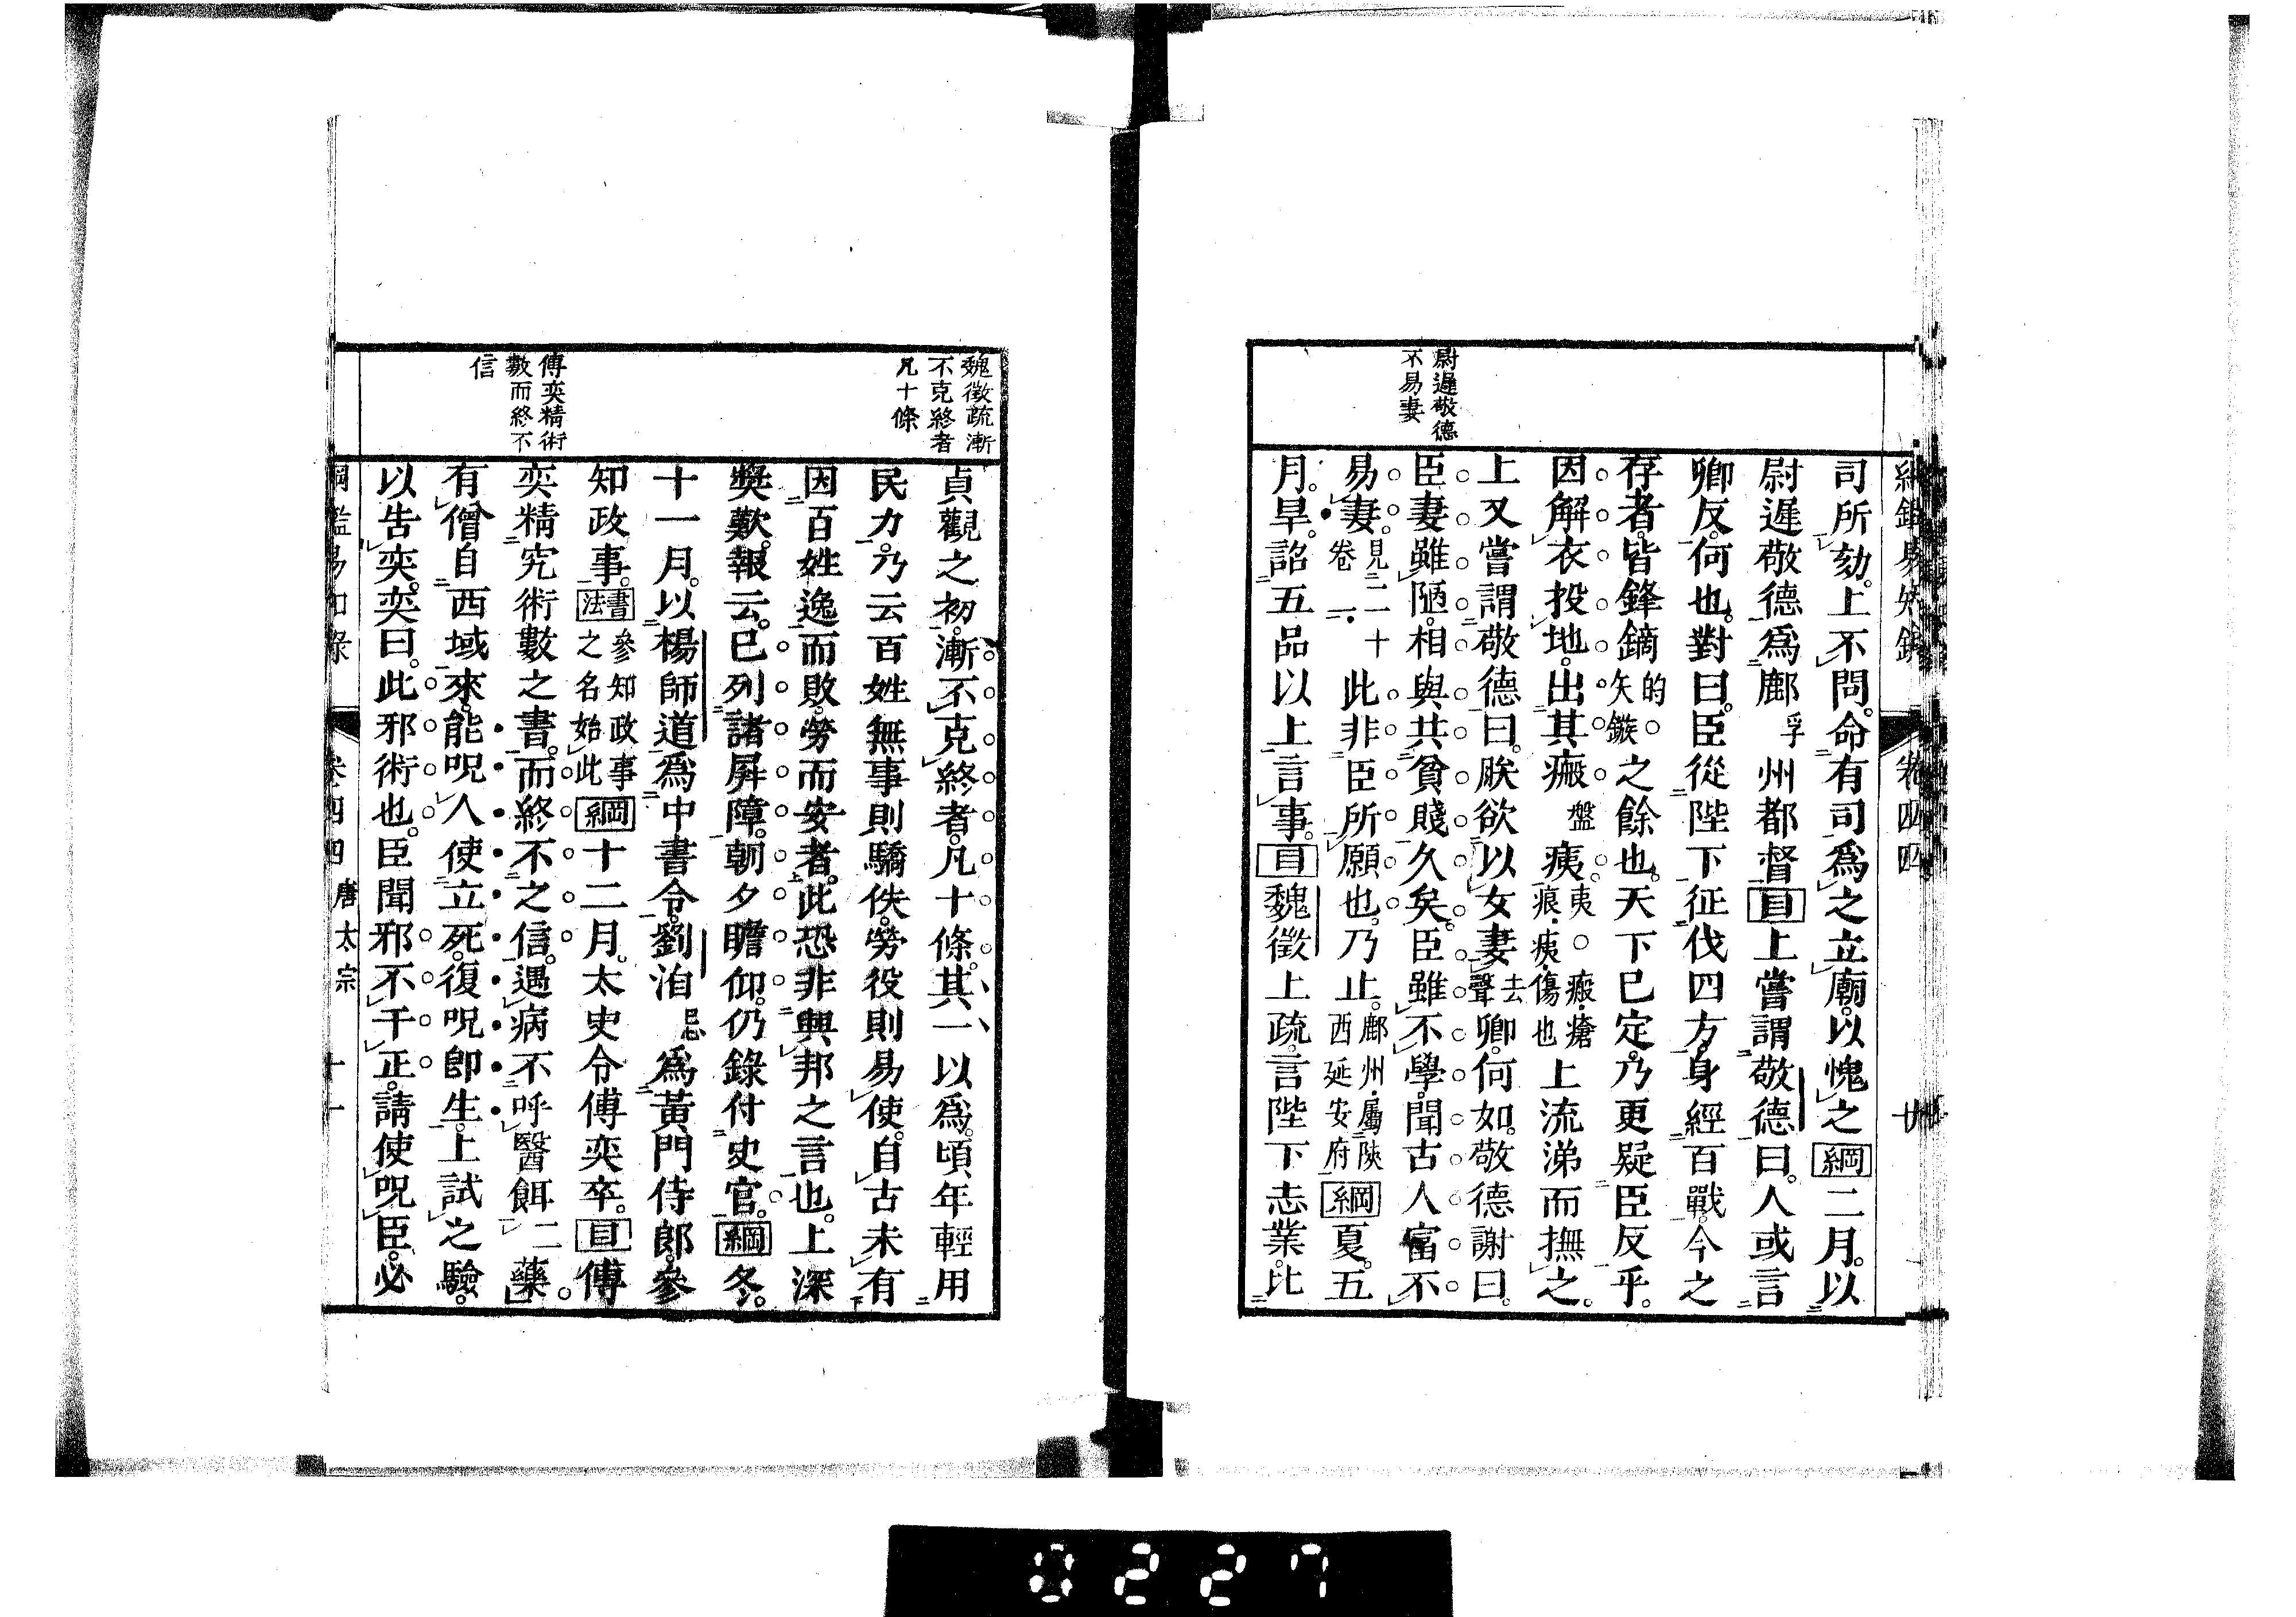 尉遲敬德
不易妻
卷四四
司所劾。上不問。命有司爲之立廟。以愧之綱二月。以
尉遲敬德爲鄜孚州都督目上嘗謂敬德曰。人或言
卿反。何也。對曰。臣從陛下征伐四方。身經百戰。今之
存者。皆鋒鏑的○矢鏃之餘也。天下已定。乃更疑臣反乎。
因解衣投地。出其瘢盤痍。夷○瘢瘡痕痍傷也上流涕而撫之。
上又嘗謂敬德曰。朕欲以女妻去聲卿。何如。敬德謝曰。
臣妻雖陋。相與共貧賤久矣。臣雖不學。聞古人富不
易妻。見二十卷一此非臣所願也。乃止。鄜州屬陝西延安府綱夏。五
月。旱。詔五品以上言事。目魏徵上疏。言陛下志業。比
魏徵疏漸
不克終者
凡十條
傅奕精術
數而終不
信
貞觀之初。漸不克終者。凡十條。其一以爲。頃年輕用
民力。乃云百姓無事則驕佚。勞役則易使。自古未有
因百姓逸而敗。勞而安者。此恐非興邦之言也。上深
獎歎。報云。已列諸屏障。朝夕瞻仰。仍錄付史官。綱冬。
十一月。以楊師道爲中書令。劉洎忌爲黃門侍郎。參
知政事。書法參知政事之名始此綱十二月。太史令傅奕卒。目傅
奕精究術數之書。而終不之信。遇病不呼醫餌藥。
有僧自西域來。能呪人使立死。復呪卽生。上試之驗。
以告奕。奕曰。此邪術也。臣聞邪不干正。請使呪臣。必
卷四四 唐太宗
0227